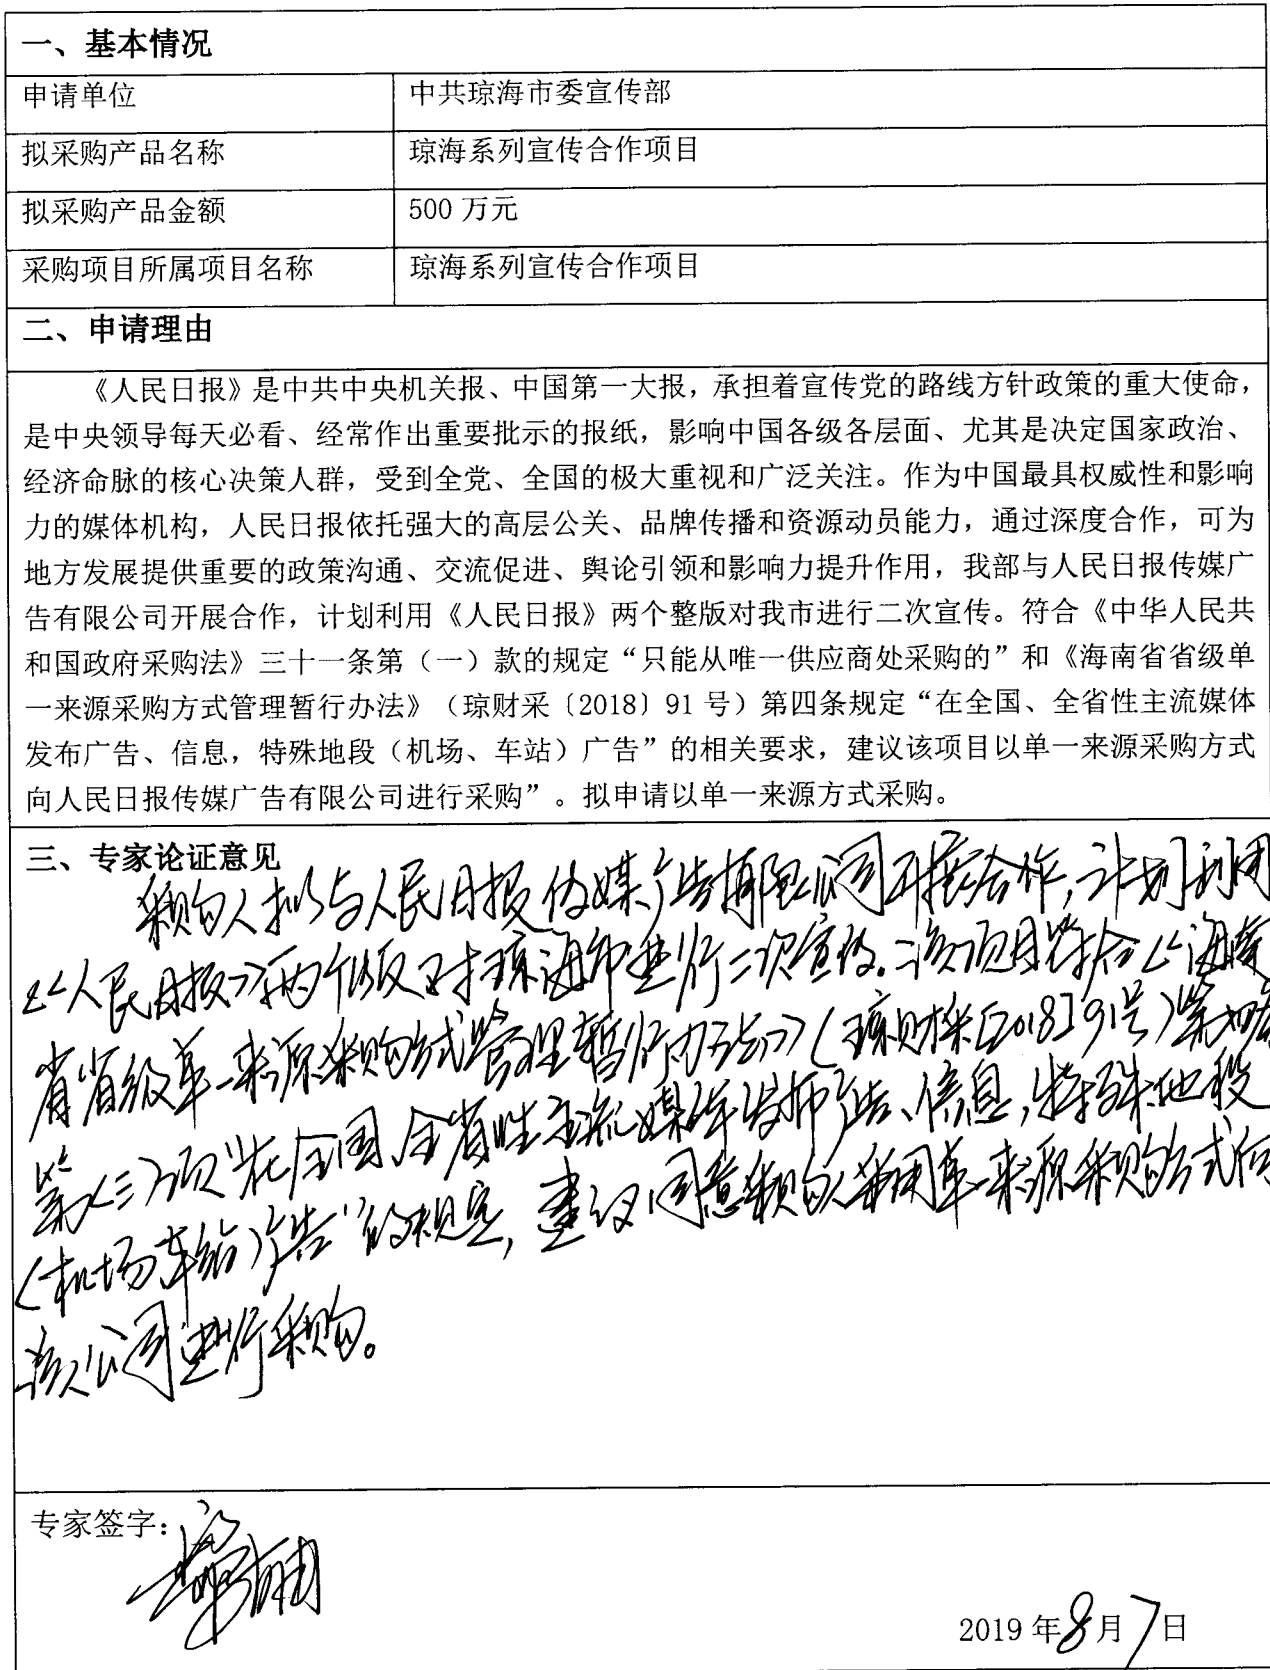 一、基本情况
申请单位 中共琼海市委宣传部
拟采购产品名称 琼海系列宣传合作项目
拟采购产品金额 500 万元
采购项目所属项目名称 琼海系列宣传合作项目
二、申请理由
《人民日报》是中共中央机关报、中国第一大报，承担着宣传党的路线方针政策的重大使命，
是中央领导每天必看、经常作出重要批示的报纸，影响中国各级各层面、尤其是决定国家政治、
经济命脉的核心决策人群，受到全党、全国的极大重视和广泛关注。作为中国最具权威性和影响
力的媒体机构，人民日报依托强大的高层公关、品牌传播和资源动员能力，通过深度合作，可为
地方发展提供重要的政策沟通、交流促进、舆论引领和影响力提升作用，我部与人民日报传媒广
告有限公司开展合作，计划利用《人民日报》两个整版对我市进行二次宣传。符合《中华人民共
和国政府采购法》三十一条第（一）款的规定“只能从唯一供应商处采购的”和《海南省省级单
一来源采购方式管理暂行办法》（琼财采〔2018〕91 号）第四条规定“在全国、全省性主流媒体
发布广告、信息，特殊地段（机场、车站）广告”的相关要求，建议该项目以单一来源采购方式
向人民日报传媒广告有限公司进行采购”。拟申请以单一来源方式采购。
三、专家论证意见
采购人拟与人民日报传媒广告有限公司开展合作，计划利用
《人民日报》两个版对琼海市进行二次宣传。该项目符合《海南
省省级单一来源采购方式管理暂行办法》（琼财采[2018]91号）第四条
第（三）项“在全国、全省性主流媒体发布广告、信息，特殊地段
（机场、车站）广告”的规定，建议同意采购人采用单一来源采购方式向
该公司进行采购。
专家签字：
2019 年 8 月 7 日